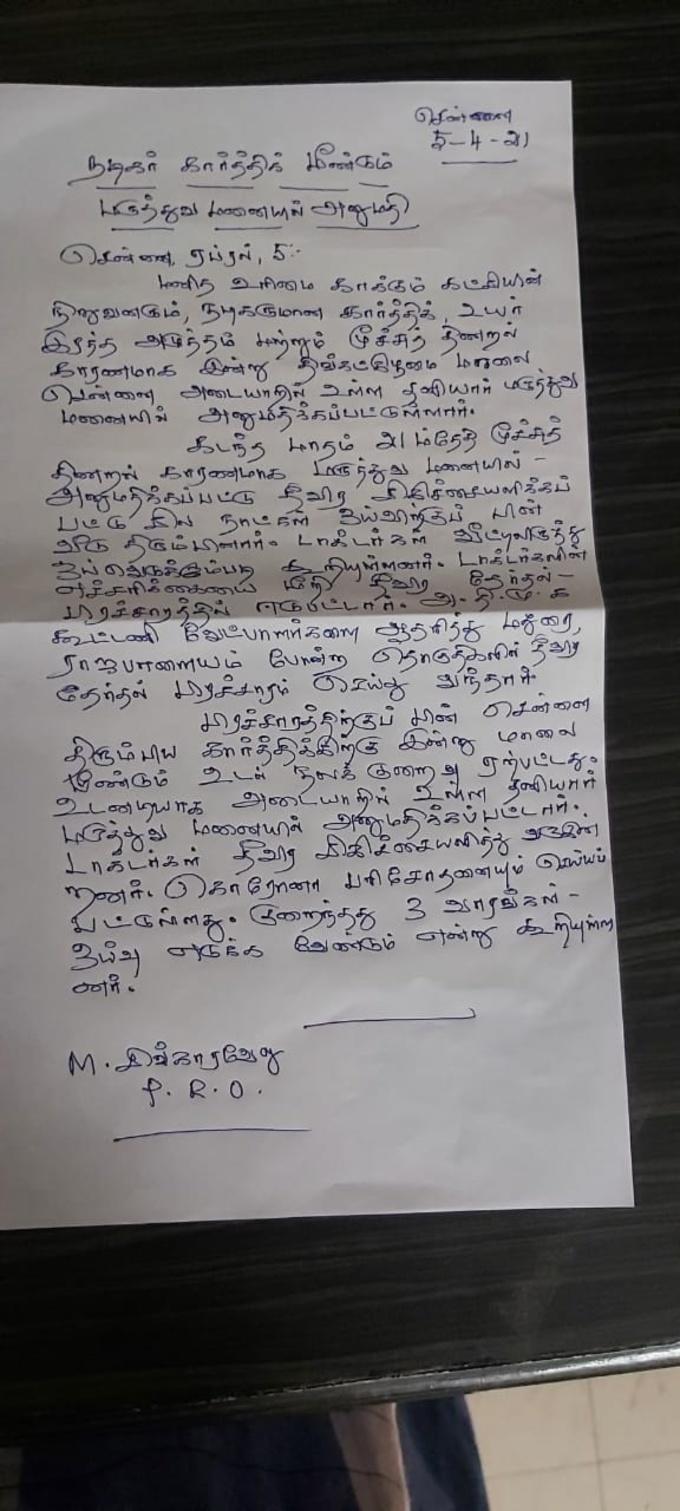 சென்னை
5-4-21
நடிகர் கார்த்திக் மீண்டும்
மருத்துவ மனையில் அனுமதி
சென்னை, ஏப்ரல், 5:-
மனித உரிமை காக்கும் கட்சியின்
நிறுவனரும், நடிகருமான கார்த்திக், உயர்
இரத்த அழுத்தம் மற்றும் மூச்சுத் திணறல்
காரணமாக இன்று திங்கட்கிழமை மாலை
சென்னை அடையாறில் உள்ள தனியார் மருத்துவ
மனையில் அனுமதிக்கப்பட்டுள்ளார்.
கடந்த மாதம் 21 ம்தேதி மூச்சுத்
திணறல் காரணமாக மருத்துவ மனையில் -
அனுமதிக்கப்பட்டு தீவிர சிகிச்சையளிக்கப்
பட்டு சில நாட்கள் ஓய்விற்குப் பின்
வீடு திரும்பினார். டாக்டர்கள் வீட்டிலிருந்து
ஓய்வெடுக்கும்படி கூறியுள்ளனர். டாக்டர்களின்
எச்சரிக்கையை மீறி தீவிர தேர்தல் -
பிரச்சாரத்தில் ஈடுபட்டார். அ. தி. மு. க
கூட்டணி வேட்பாளர்களை ஆதரித்து மதுரை,
ராஜபாளையம் போன்ற தொகுதிகளில் தீவிர
தேர்தல் பிரச்சாரம் செய்து வந்தார்.
பிரச்சாரத்திற்குப் பின் சென்னை
திரும்பிய கார்த்திக்கிற்கு இன்று மாலை
மீண்டும் உடல் நலக் குறைவு ஏற்பட்டது.
உடனடியாக அடையாறில் உள்ள தனியார்
மருத்துவ மனையில் அனுமதிக்கப்பட்டார்.
டாக்டர்கள் தீவிர சிகிச்சையளித்து வருகின்
றனர். கொரோனா பரிசோதனையும் செய்யப்
பட்டுள்ளது. குறைந்தது 3 வாரங்கள் -
ஓய்வு எடுக்க வேண்டும் என்று கூறியுள்ள
னர்.
M. சிங்காரவேலு
P. R. O.